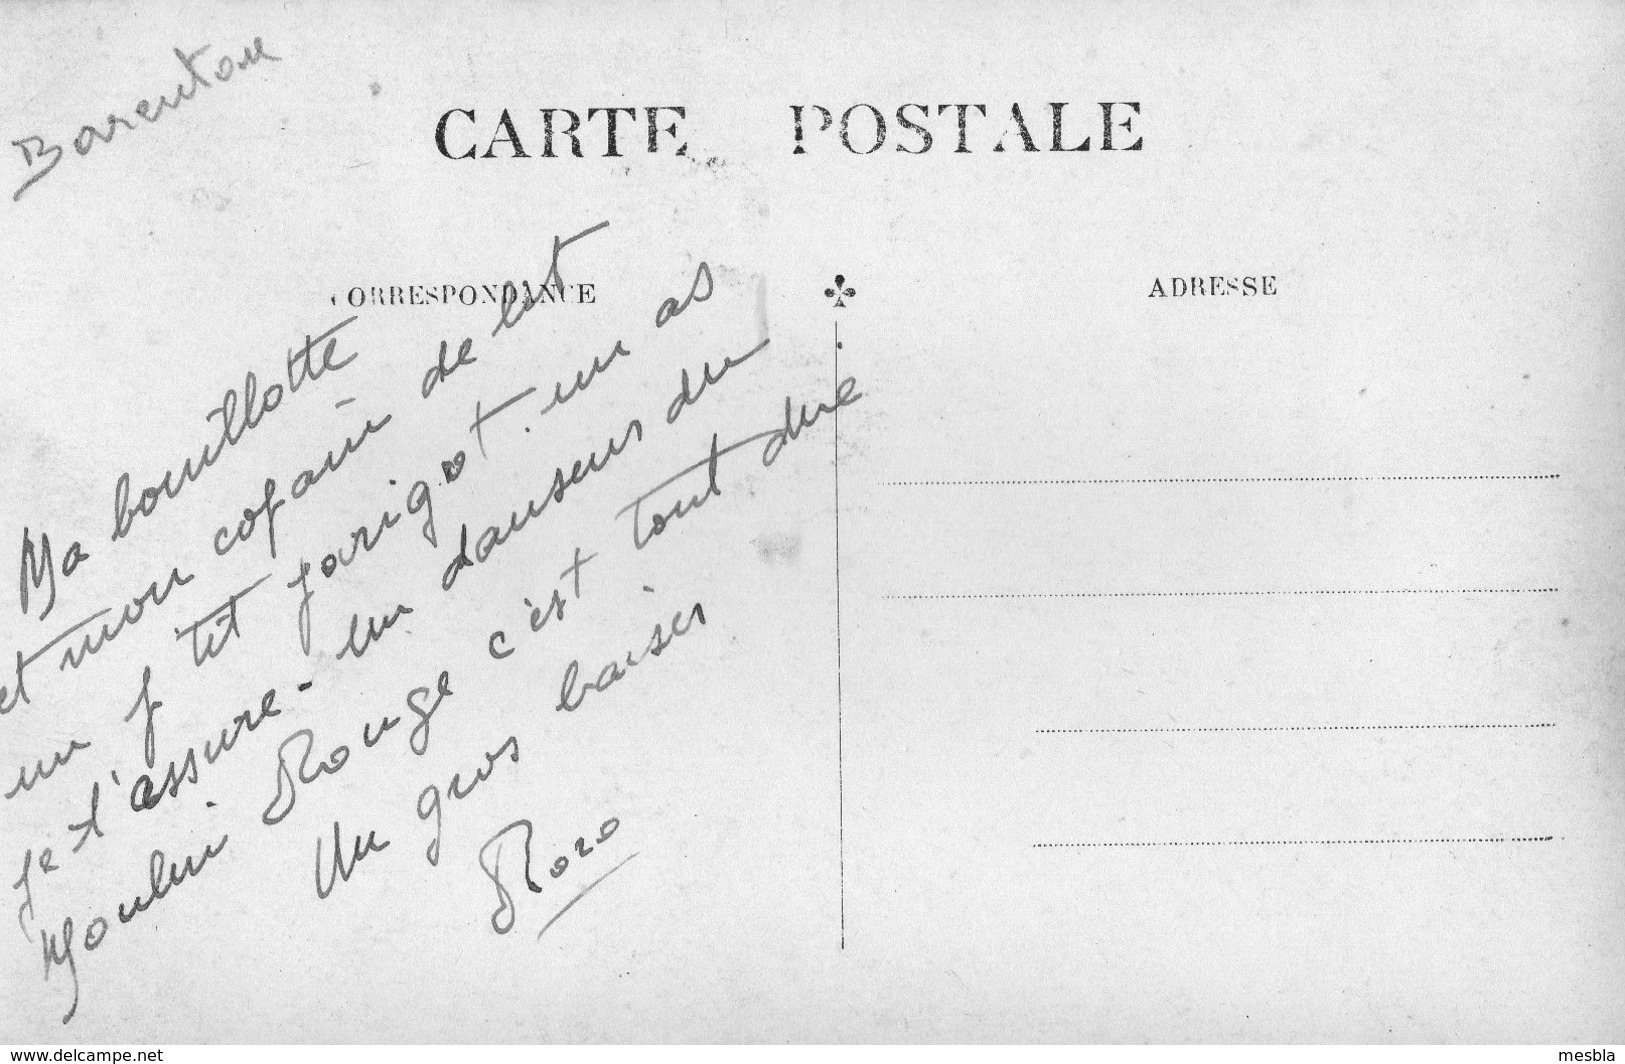 Barenton
CARTE POSTALE
CORRESPONDANCE
ADRESSE
Ma bouillotte
et mon copain de lit
un p'tit parigot. un as
je t'assure - un danseur du
Moulin Rouge c'est tout dire
Un gros baiser
Roro
www.delcampe.net
mesbla